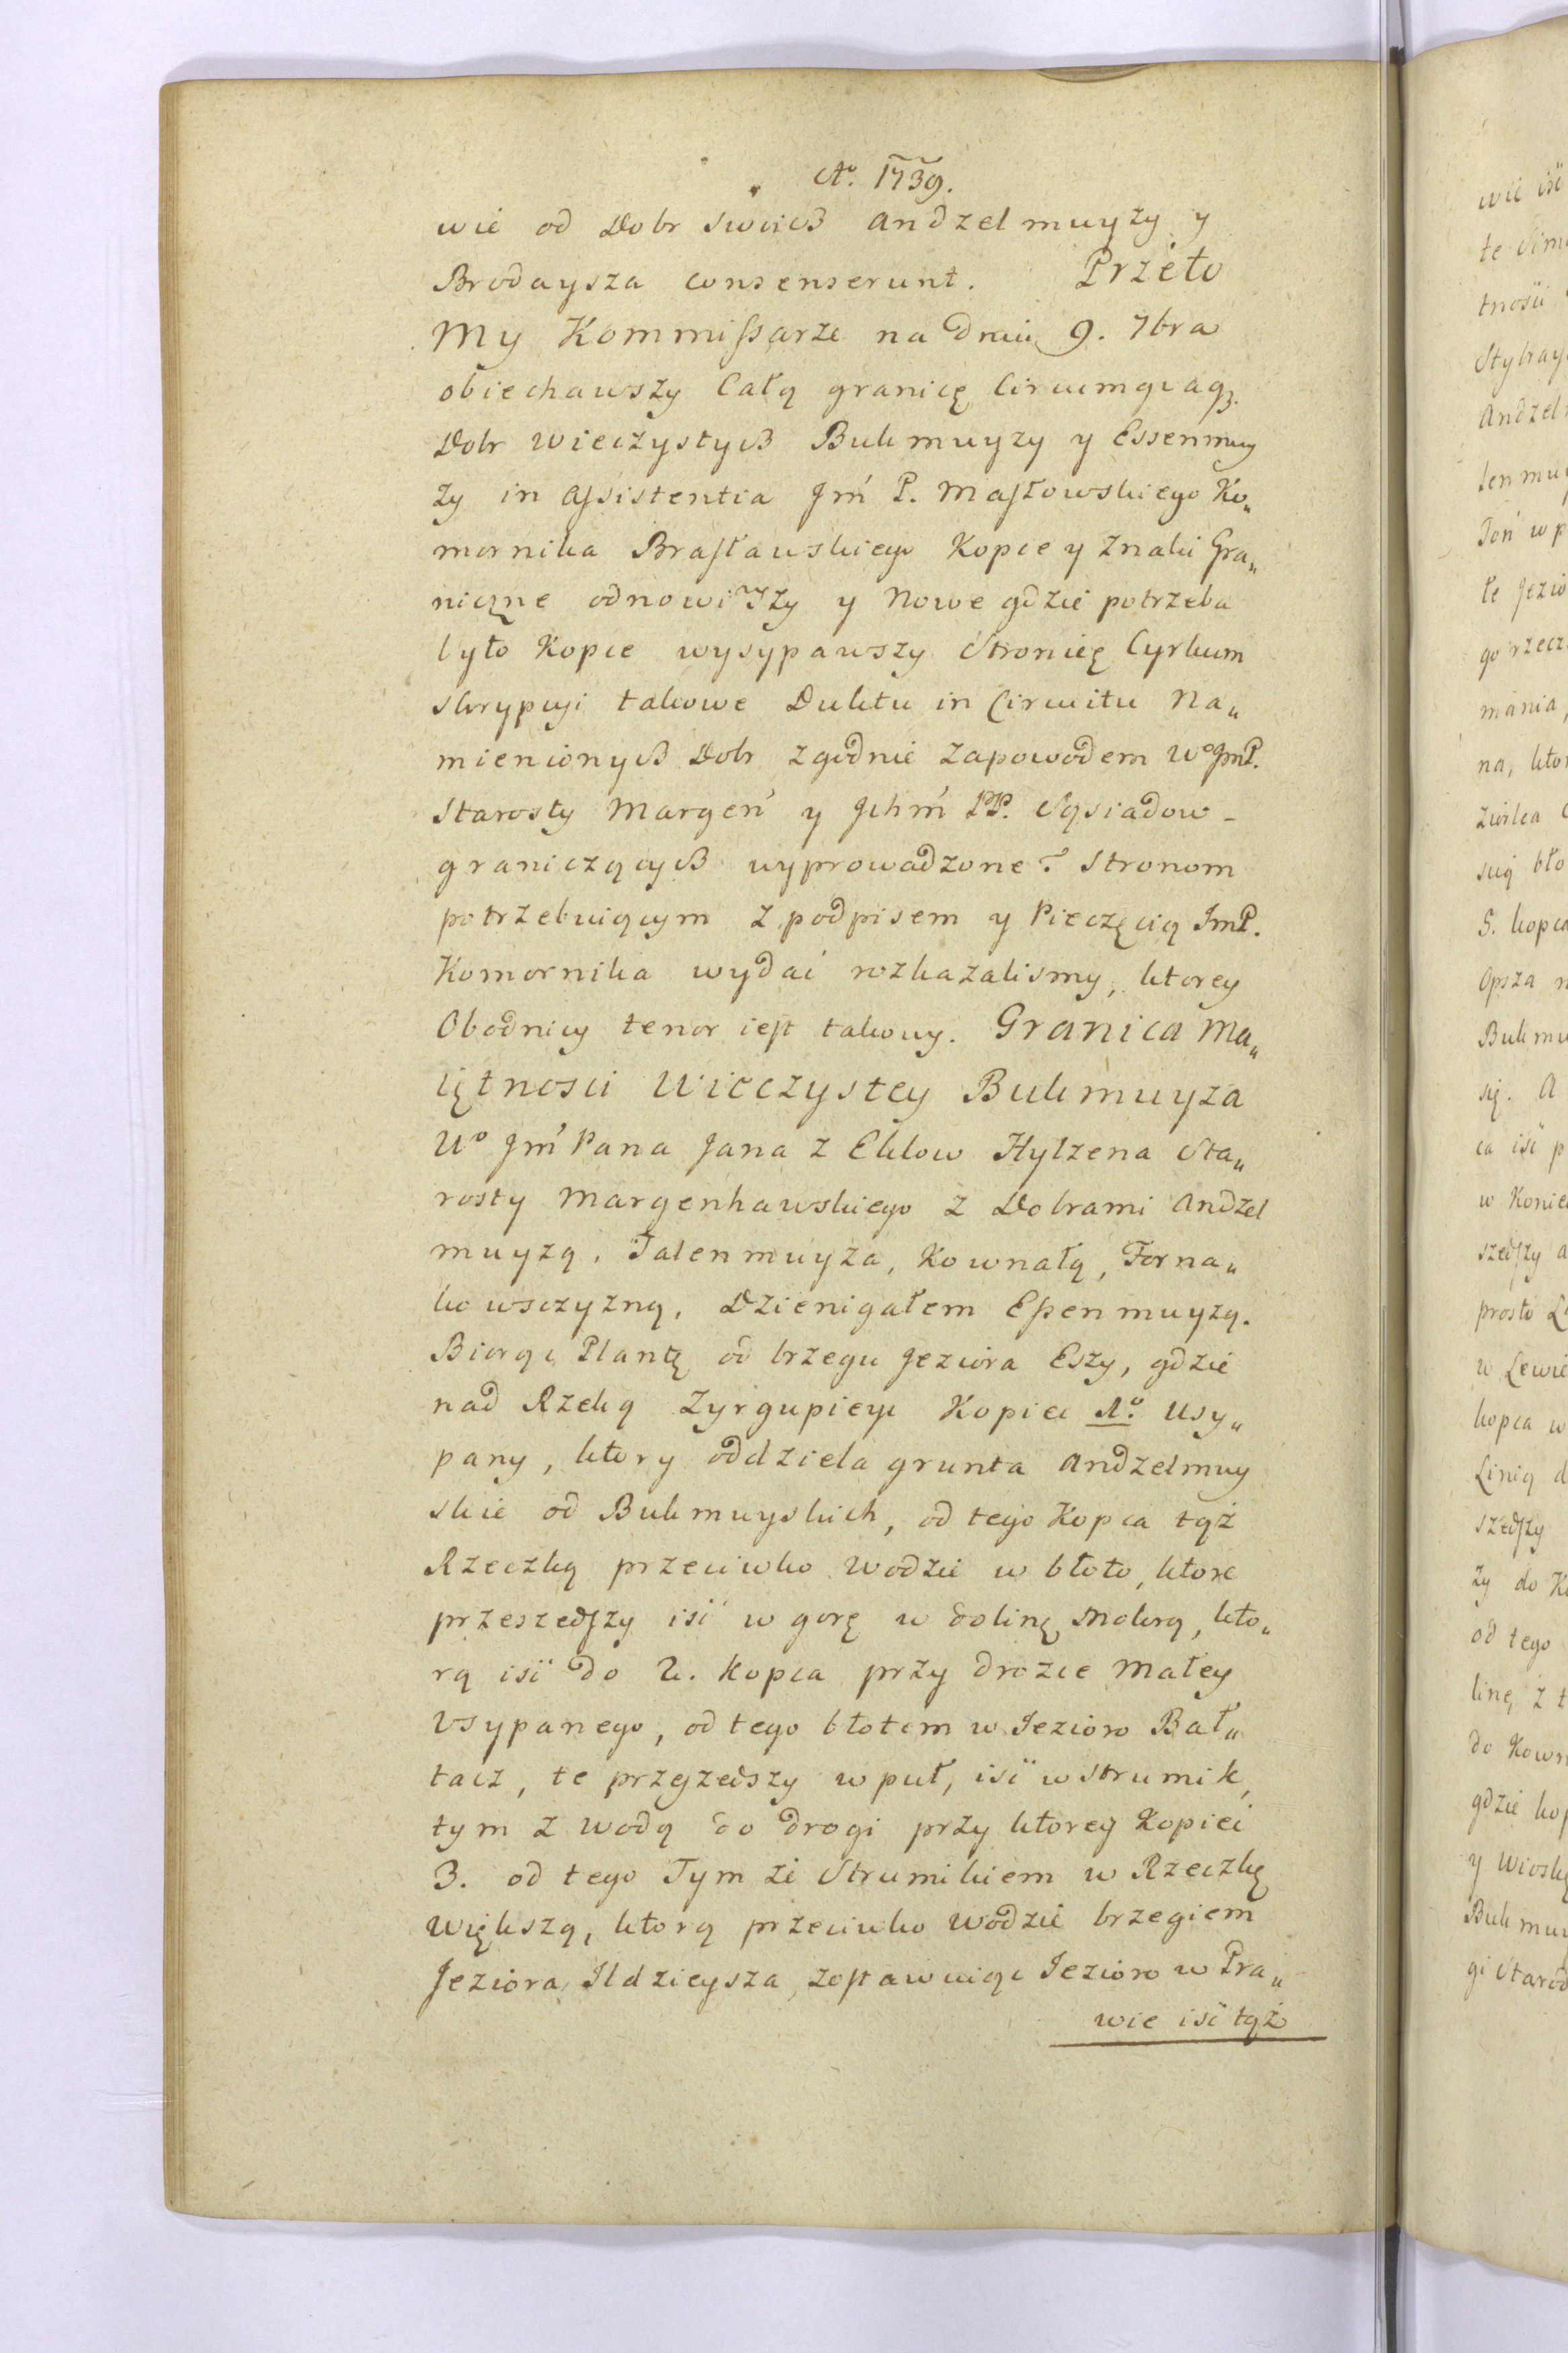 Aº. 1739.
wie od Dobr swoich Andzelmuyży y
Brodaysza consenserunt. Przeto
My Kommissarze na dniu 9. 7bra
obiechawszy Całą granicę Circumquaq3.
Dobr Wieczystych Bukmuyzy y Essenmuy
ży in assistentia Jm̃ P. Masłowskiego Ko„
mornika Brasławskiego Kopce y Znaki Gra„
niczne odnowiwszy y Nowe gdzie potrzeba
było Kopce wysypawszy Stronicę Cyrkum
skrypcyi takowe Duktu in Circuitu Na„
mienionych Dobr zgodnie zapowodem Wº JmP.
Starosty Margeń y Jchm̃ PP. Sąsiadow -
graniczących wyprowadzone? Stronom
potrzebuiącym z podpisem y Pieczęcią JmP.
Komornika wydać rozkazalismy, ktorey
Obodnicy tenor iest takowy. Granica Ma„
iętnosci Wieczystey Bukmuyza
Wº Jm̃ Pana Jana z Eklow Hylzena Sta„
rosty Margenhawskiego z Dobrami Andzel
muyzą, Talenmuyza, Kownatą, Forna„
kowsczyzną, Dzienigałem Essenmuyzą.
Biorąc Plantę od brzegu Jeziora Eszy, gdzie
nad Rzeką Zyrgupieyc Kopiec 1º. Usy„
pany, ktory oddziela grunta Andzelmuy
skie od Bukmuyskich, od tego Kopca tąż
Rzeczką przeciwko Wodzie w błoto, ktore
przeszedszy isć w gorę w dolinę Mokrą, kto„
rą isć do 2. Kopca przy drozce Małey
Vsypanego, od tego błotem w Jezioro Bał„
tacz, te przeszedszy w puł, isć w strumik,
tym z wodą do drogi przy ktorey Kopiec
3. od tego Tym że Strumikiem w Rzeczkę
Większą, ktorą przeciwko Wodzie brzegiem
Jeziora Ildzieysza, zostawuiąc Jezioro w Pra„
wie isć tąż